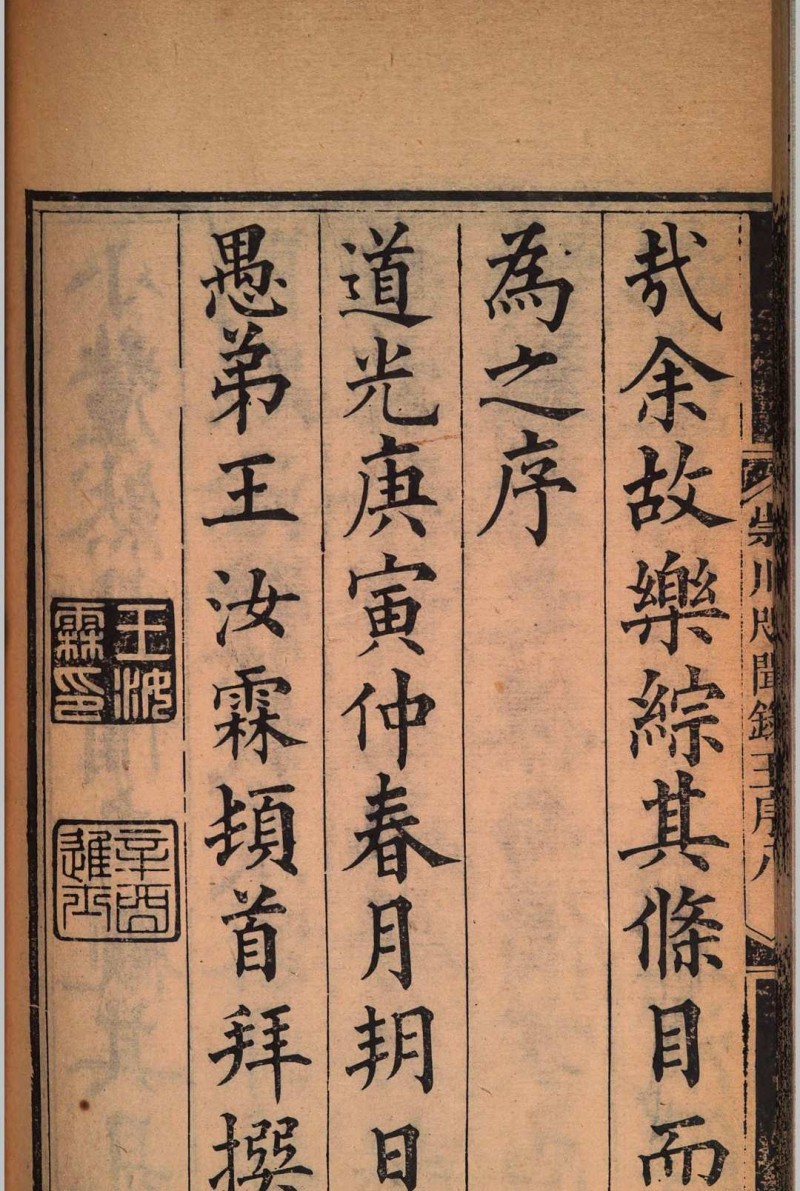 哉余故樂綜其條目而
為之序
道光庚寅仲春月朔日
愚弟王汝霖頓首拜撰
王汝霖印
辛酉進士
崇川咫聞錄 王序 八